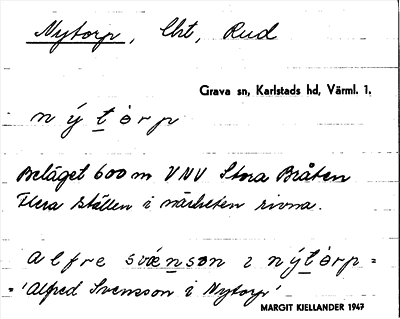 Nytorp, Lht, Rud
Grava sn, Karlstads hd, Värml. l.
n ý t ȯ r p
Beläget 600 m VNV Stora Bråten
Flera ställen i närheten rivna.
alfre svænson i nýtȯrp =
= 'Alfred Svensson i Nytorp'
MARGIT KIELLANDER 1947